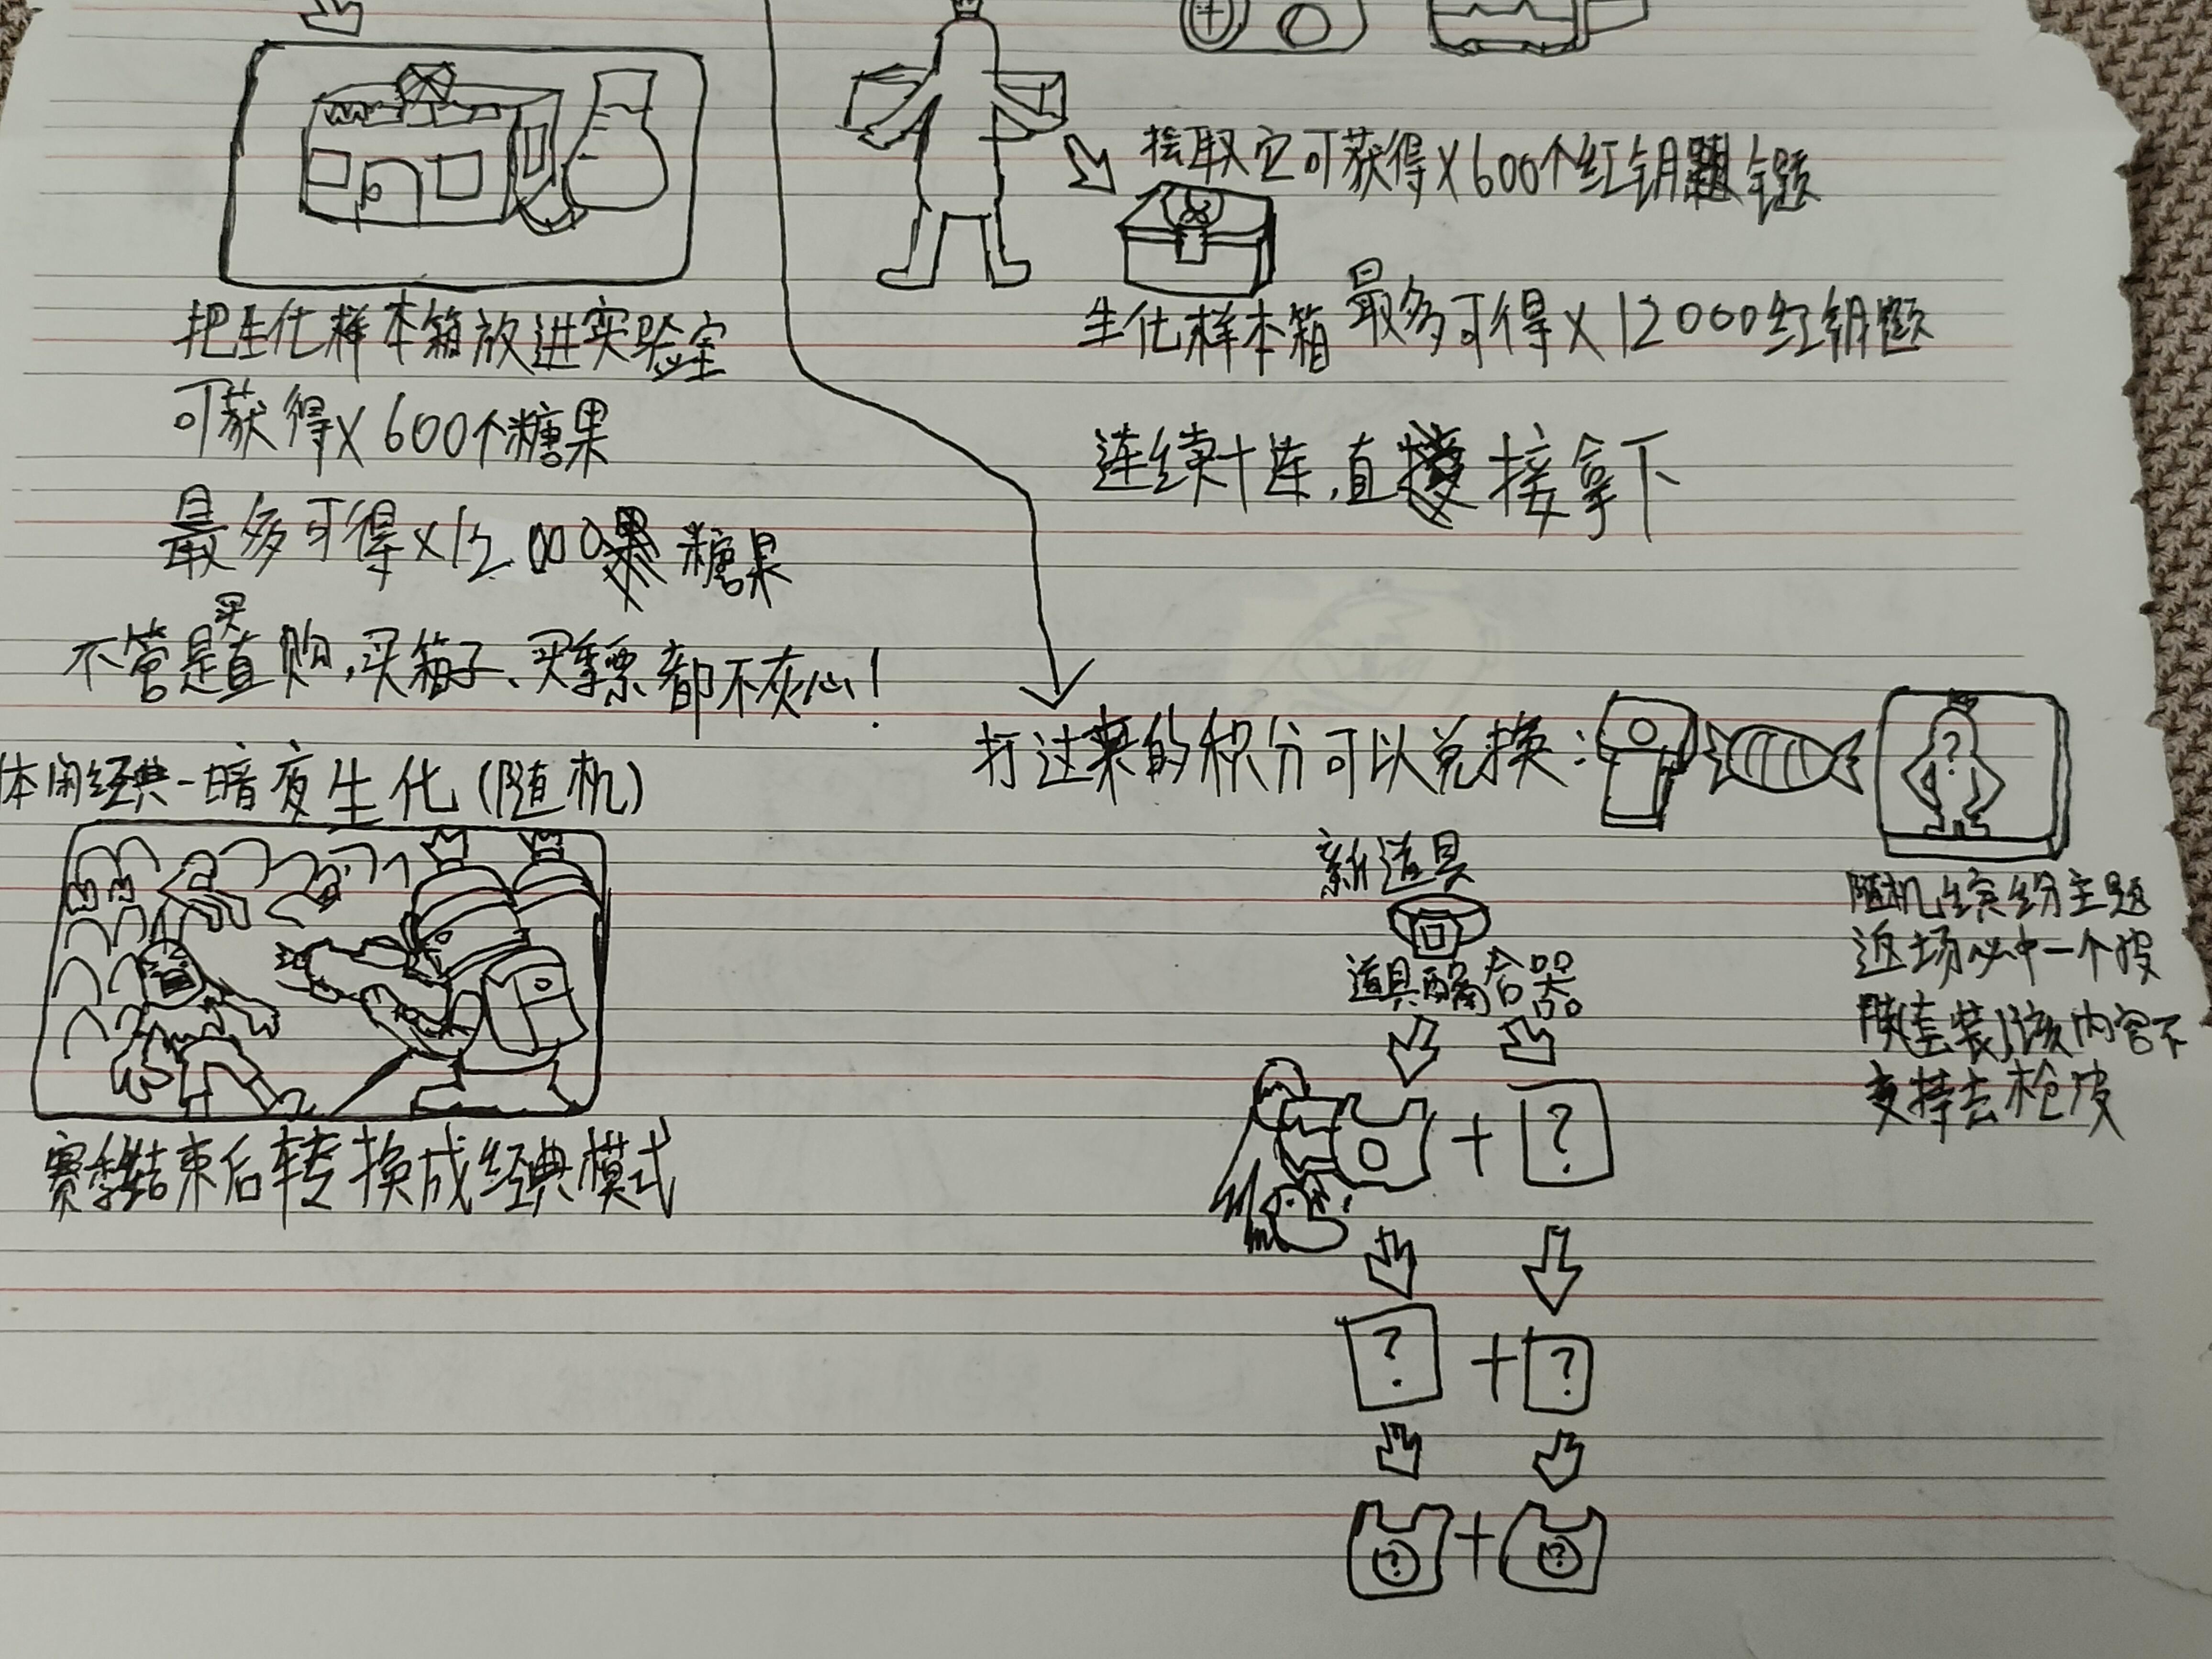 把生化样本箱放进实验室
可获得X600个糖果
最多可得X12000糖果
不管是买直购,买箱子、买季票都不灰心!
体闲经典-暗夜生化(随机)
赛季结束后转换成经典模式
拾取它可获得X600个红钥题
生化样本箱 最多可得X12000红钥题
连续十连,直接拿下
打过来的积分可以兑换:
新道具
道具融合器
随机缤纷主题
返场必中一个皮
肤(套装)该内容不
支持去枪皮
? + ?
? + ?